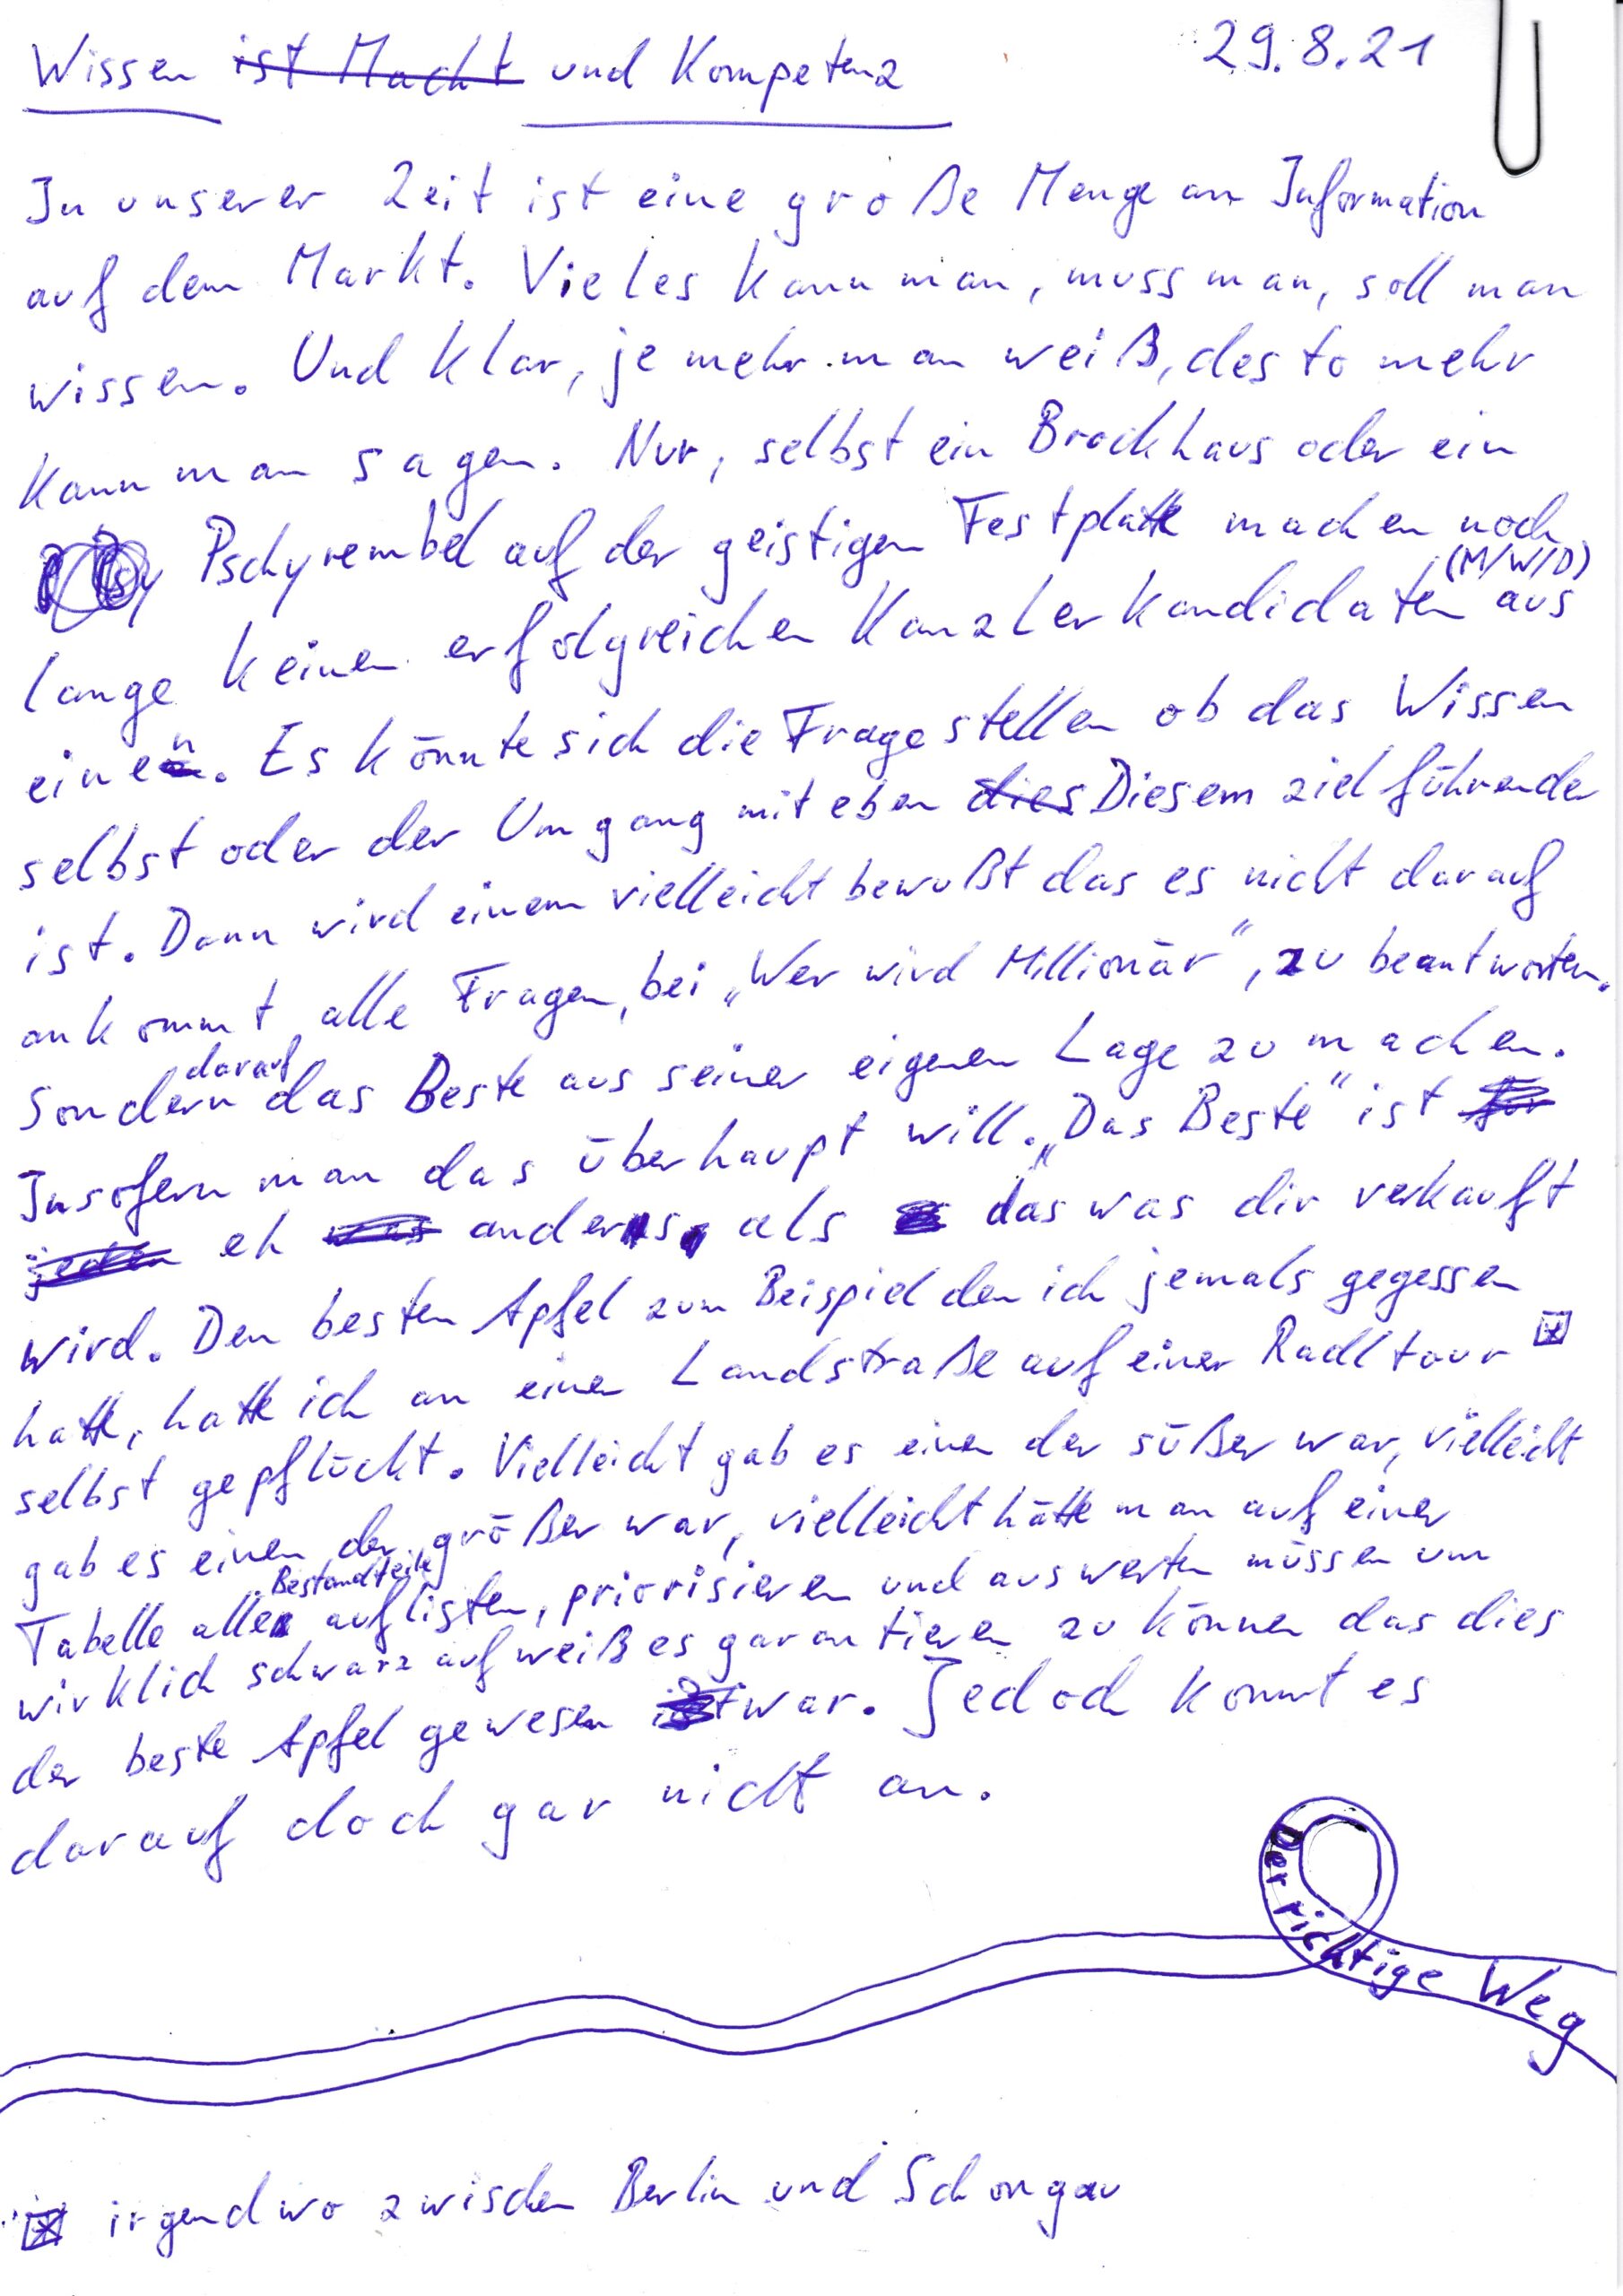 Wissen ist Macht und Kompetenz 29.8.21
In unserer Zeit ist eine große Menge an Information
auf dem Markt. Vieles kann man, muss man, soll man
wissen. Und klar, je mehr man weiß, desto mehr
kann man sagen. Nur, selbst ein Brockhaus oder ein
Psy Pschyrembel auf der geistigen Festplatte machen noch
(M/W/D)
lange keinen erfolgreichen Kanzlerkandidaten aus
einen. Es könnte sich die Frage stellen ob das Wissen
selbst oder der Umgang mit eben dies Diesem zielführender
ist. Dann wird einem vielleicht bewußt das es nicht darauf
ankommt, alle Fragen, bei „Wer wird Millionär“, zu beantworten.
darauf
Sondern das Beste aus seiner eigenen Lage zu machen.
Insofern man das überhaupt will. „Das Beste“ ist für
jeden eh was anders, als das was dir verkauft
wird. Den besten Apfel zum Beispiel den ich jemals gegessen
hatte, hatte ich an einer Landstraße auf einer Radltour
selbst gepflückt. Vielleicht gab es einen der süßer war, vielleicht
gab es einen der größer war, vielleicht hätte man auf einer
Bestandteile
Tabelle alle auflisten, priorisieren und auswerten müssen um
wirklich schwarz auf weiß es garantieren zu können das dies
der beste Apfel gewesen ist war. Jedoch kommt es
darauf doch gar nicht an.
Der richtige Weg
irgendwo zwischen Berlin und Schongau